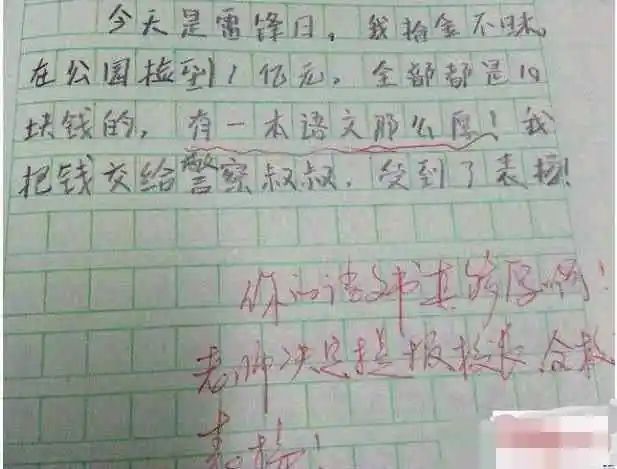 今天是雷锋日，我拾金不昧。
在公园捡到1亿元，全部都是10
块钱的，有一本语文那么厚！我
把钱交给警察叔叔，受到了表扬！
你的语文书真够厚啊！
老师决定提报校长，全校
表扬！